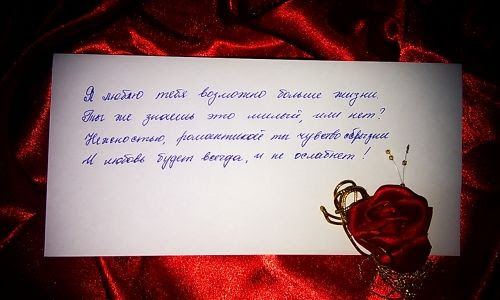 Я люблю тебя возможно больше жизни.
Ты же знаешь это милый, или нет?
Нежностью, романтикой ты чувства образни
И любовь будет всегда, и не ослабнет!